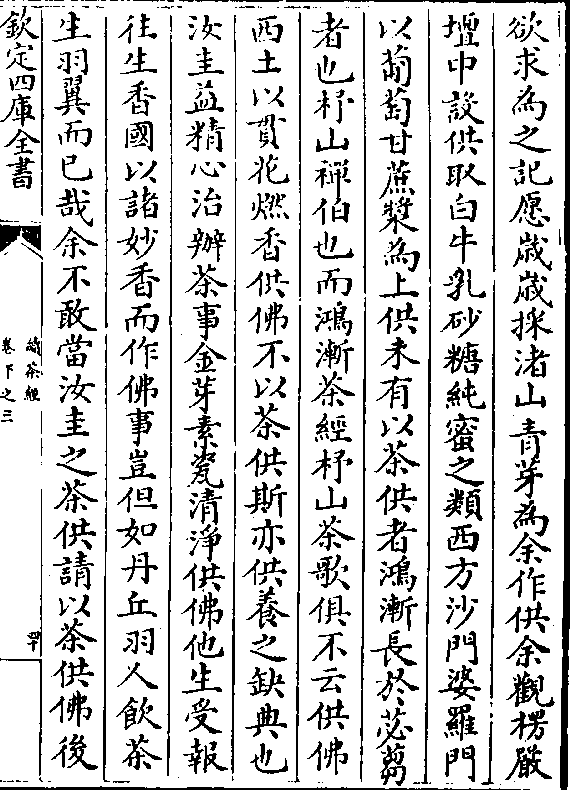 欲求為之記愿歲歲採渚山青芽為余作供余觀楞嚴
壇中設供取白牛乳砂糖純蜜之類西方沙門婆羅門
以葡萄甘蔗漿為上供未有以茶供者鴻漸長於苾蒭
者也杼山禪伯也而鴻漸茶經杼山茶歌俱不云供佛
西土以貫花燃香供佛不以茶供斯亦供養之缺典也
汝圭益精心治辦茶事金芽素瓷清淨供佛他生受報
往生香國以諸妙香而作佛事豈但如丹丘羽人飲茶
生羽翼而已哉余不敢當汝圭之茶供請以茶供佛後
欽定四庫全書
續茶經
卷下之三